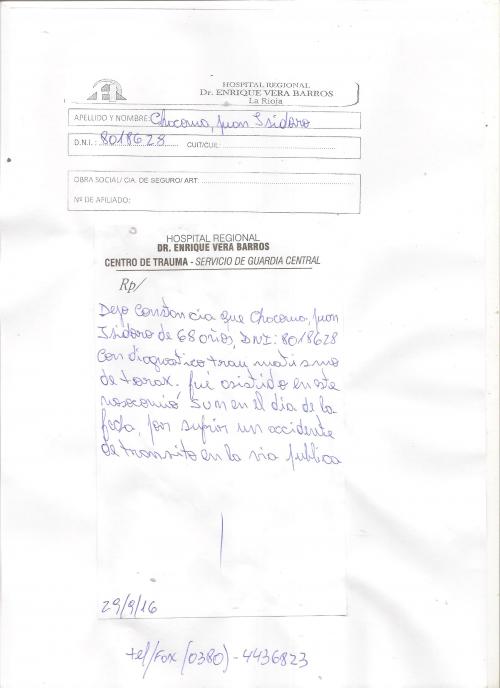 HOSPITAL REGIONAL
Dr. ENRIQUE VERA BARROS
La Rioja
APELLIDO Y NOMBRE: Chocomo, Juan Isidoro
D.N.I.: 8018628 CUIT/CUIL:
OBRA SOCIAL/ CIA. DE SEGURO/ ART:
Nº DE AFILIADO:
HOSPITAL REGIONAL
DR. ENRIQUE VERA BARROS
CENTRO DE TRAUMA - SERVICIO DE GUARDIA CENTRAL
Rp/
Dejo Constancia que Chocomo, Juan
Isidoro de 68 años, DNI: 8018628
Con diagnostico traumatismo
de torax. fué asistido en este
nosocomió en el día de la
fecha, por sufrir un accidente
de transito en la via publica
29/9/16
tel/Fax (0380) - 4436823